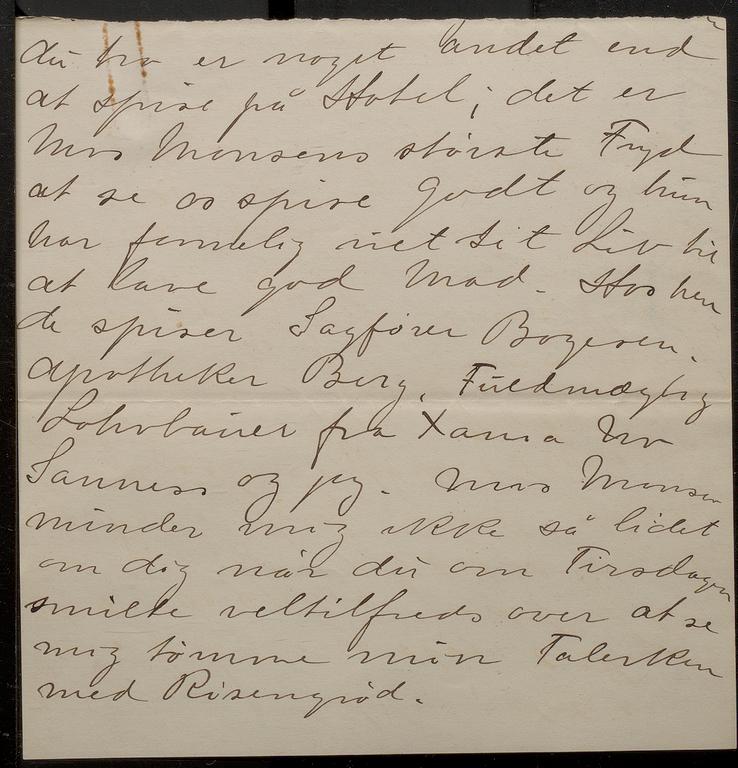 du tro er noget andet end
at spise på Hotel; det er
Mrs Monsens største Fryd
at se os spise godt og hun
har formelig viet sit Liv til
at lave god Mad. Hos hen
de spiser Sagfører Bogesen.
Apotheker Berg, Fuldmægtig
Lohrbauer fra Xania Hr
Sanness og jeg. Mrs Monsen
minder mig ikke så lidet
om dig når du om Tirsdagen
smilte veltilfreds over at se
mig tømme min Talerken
med Risengrød.